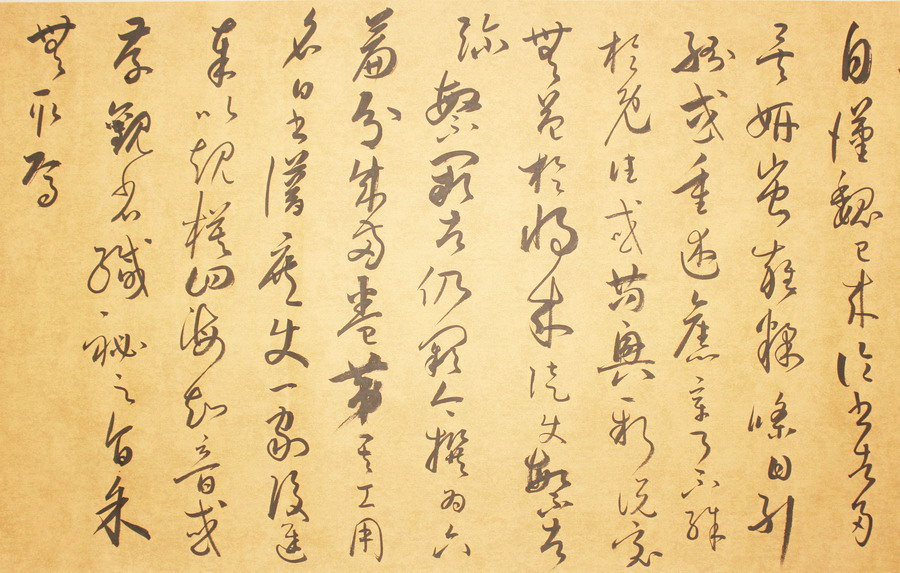 自漢魏已來論書者多
矣妍蚩雜糅條目糾
紛或重述舊章了不殊
於既往或苟興新說竟
無益於將來徒使繁者
彌繁闕者仍闕今撰為六
篇分成兩卷第其工用
名曰書譜庶使一家後進
奉以規模四海知音或
存觀省緘秘之旨余
無取焉